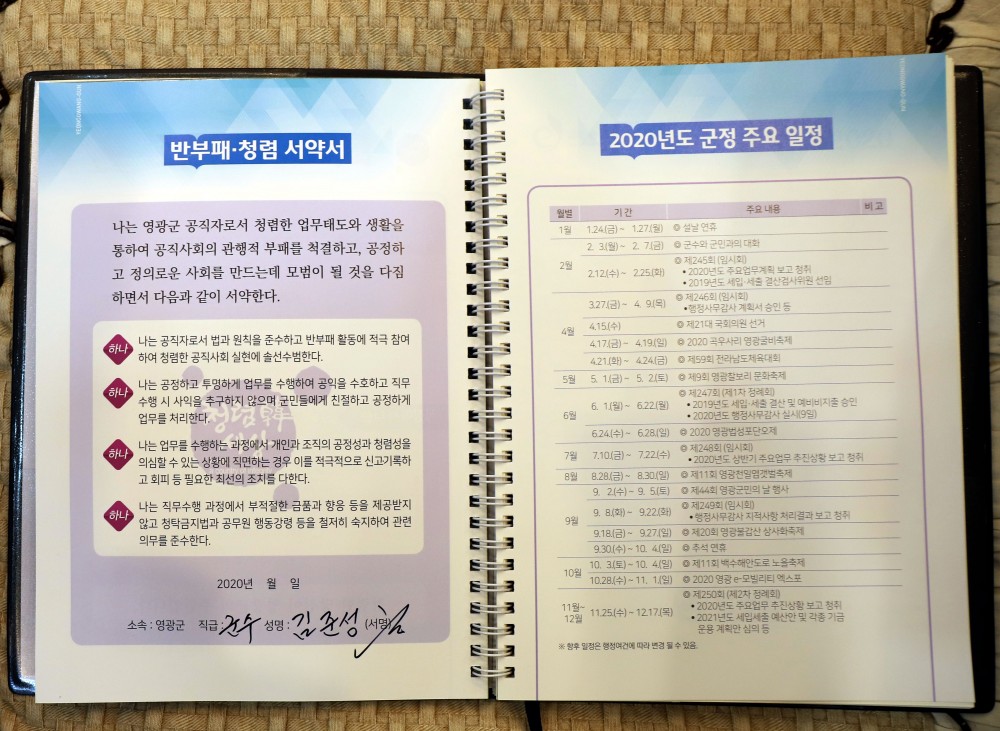 YEONGGWANG-GUN
반부패·청렴 서약서
나는 영광군 공직자로서 청렴한 업무태도와 생활을
통하여 공직사회의 관행적 부패를 척결하고, 공정하
고 정의로운 사회를 만드는데 모범이 될 것을 다짐
하면서 다음과 같이 서약한다.
하나 나는 공직자로서 법과 원칙을 준수하고 반부패 활동에 적극 참여
하여 청렴한 공직사회 실현에 솔선수범한다.
하나 나는 공정하고 투명하게 업무를 수행하여 공익을 수호하고 직무
수행 시 사익을 추구하지 않으며 군민들에게 친절하고 공정하게
업무를 처리한다.
하나 나는 업무를 수행하는 과정에서 개인과 조직의 공정성과 청렴성을
의심할 수 있는 상황에 직면하는 경우 이를 적극적으로 신고기록하
고 회피 등 필요한 최선의 조치를 다한다.
하나 나는 직무수행 과정에서 부적절한 금품과 향응 등을 제공받지
않고 청탁금지법과 공무원 행동강령 등을 철저히 숙지하여 관련
의무를 준수한다.
2020년 월 일
소속 : 영광군 직급 : 군수 성명 : 김준성 (서명)
YEONGGWANG-GUN
2020년도 군정 주요 일정
월별 기 간 주요 내용 비 고
1월 1.24.(금) ~ 1.27.(월) ◎ 설날 연휴
2. 3.(월) ~ 2. 7.(금) ◎ 군수와 군민과의 대화
2월 2.12.(수) ~ 2.25.(화) ◎ 제245회 (임시회)
• 2020년도 주요업무계획 보고 청취
• 2019년도 세입·세출 결산검사위원 선임
3.27.(금) ~ 4. 9.(목) ◎ 제246회 (임시회)
•행정사무감사 계획서 승인 등
4월 4.15.(수) ◎ 제21대 국회의원 선거
4.17.(금) ~ 4.19.(일) ◎ 2020 곡우사리 영광굴비축제
4.21.(화) ~ 4.24.(금) ◎ 제59회 전라남도체육대회
5월 5. 1.(금) ~ 5. 2.(토) ◎ 제9회 영광찰보리 문화축제
6월 6. 1.(월) ~ 6.22.(월) ◎ 제247회 (제1차 정례회)
• 2019년도 세입·세출 결산 및 예비비지출 승인
• 2020년도 행정사무감사 실시(9일)
6.24.(수) ~ 6.28.(일) ◎ 2020 영광법성포단오제
7월 7.10.(금) ~ 7.22.(수) ◎ 제248회 (임시회)
• 2020년도 상반기 주요업무 추진상황 보고 청취
8월 8.28.(금) ~ 8.30.(일) ◎ 제11회 영광천일염갯벌축제
9. 2.(수) ~ 9. 5.(토) ◎ 제44회 영광군민의 날 행사
9월 9. 8.(화) ~ 9.22.(화) ◎ 제249회 (임시회)
•행정사무감사 지적사항 처리결과 보고 청취
9.18.(금) ~ 9.27.(일) ◎ 제20회 영광불갑산 상사화축제
9.30.(수) ~ 10. 4.(일) ◎ 추석 연휴
10월 10. 3.(토) ~ 10. 4.(일) ◎ 제11회 백수해안도로 노을축제
10.28.(수) ~ 11. 1.(일) ◎ 2020 영광 e-모빌리티 엑스포
11월~
12월 11.25.(수) ~ 12.17.(목) ◎ 제250회 (제2차 정례회)
• 2020년도 주요업무 추진상황 보고 청취
• 2021년도 세입세출 예산안 및 각종 기금
운용 계획안 심의 등
※ 향후 일정은 행정여건에 따라 변경 될 수 있음.